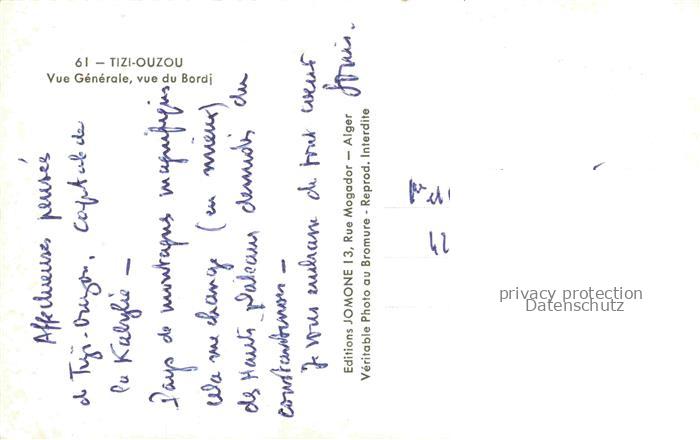 61 — TIZI-OUZOU
Vue Générale, vue du Bordj
Affectueuses pensées
de Tizi-Ouzou, capitale de
la Kabylie —
Pays de montagnes magnifiques
cela me change (en mieux)
des Hauts-Plateaux dénudés du
constantinois —
Je vous embrasse de tout cœur
Editions JOMONE 13, Rue Mogador — Alger
Véritable Photo au Bromure - Reprod. Interdite
42
privacy protection
Datenschutz